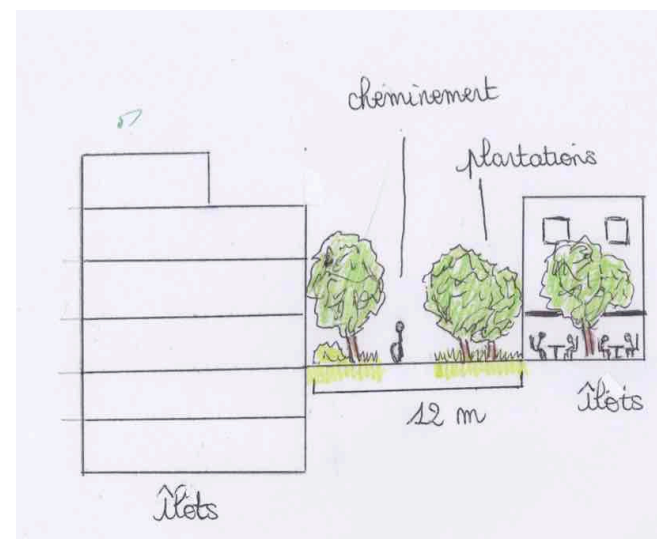 cheminement
plantations
12 m
Îlots
Îlots